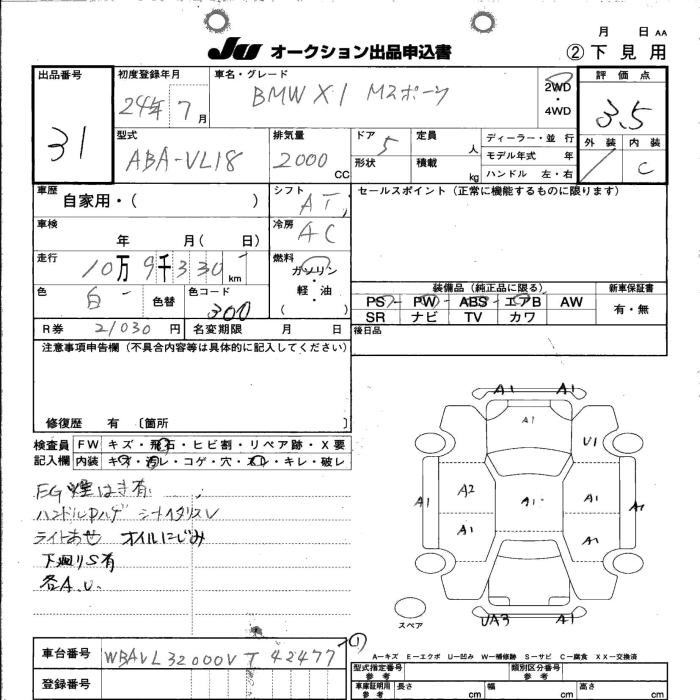 月 日 AA
JU オークション出品申込書 ②下見用
出品番号 31
初度登録年月 24年7月
車名・グレード BMW X1 Mスポーツ
2WD・4WD
評価点 3.5
型式 ABA-VL18
排気量 2000 CC
ドア 5
形状
定員 人
積載 kg
ディーラー・並行
モデル年式 年
ハンドル 左・右
外装 内装 C
車歴 自家用・( )
シフト AT
セールスポイント(正常に機能するものに限ります)
車検 年 月( 日)
冷房 AC
走行 10万9千330km
燃料 ガソリン・軽油 ( )
色 白 色替 色コード 300
装備品(純正品に限る)
PS PW ABS エアB AW
SR ナビ TV カワ
新車保証書 有・無
R券 21030円 名変期限 月 日
後日品
注意事項申告欄(不具合内容等は具体的に記入してください)
修復歴 有 〔箇所 〕
検査員記入欄
FW キズ・飛石・ヒビ割・リペア跡・X要
内装 キズ・汚レ・コゲ・穴・スレ・キレ・破レ
ライトあせ オイルにじみ
下廻りS有
各A.U.
A1 A1
A1
U1
A1 A2 A1 A1 A1
A1 A1
UA3 A1
スペア
車台番号 WBAVL32000VT42477
登録番号
A－キズ E－エクボ U－凹み W－補修跡 S－サビ C－腐食 XX－交換済
型式指定番号 参考 類別区分番号 参考
車庫証明用 参考 長さ cm 幅 cm 高さ cm